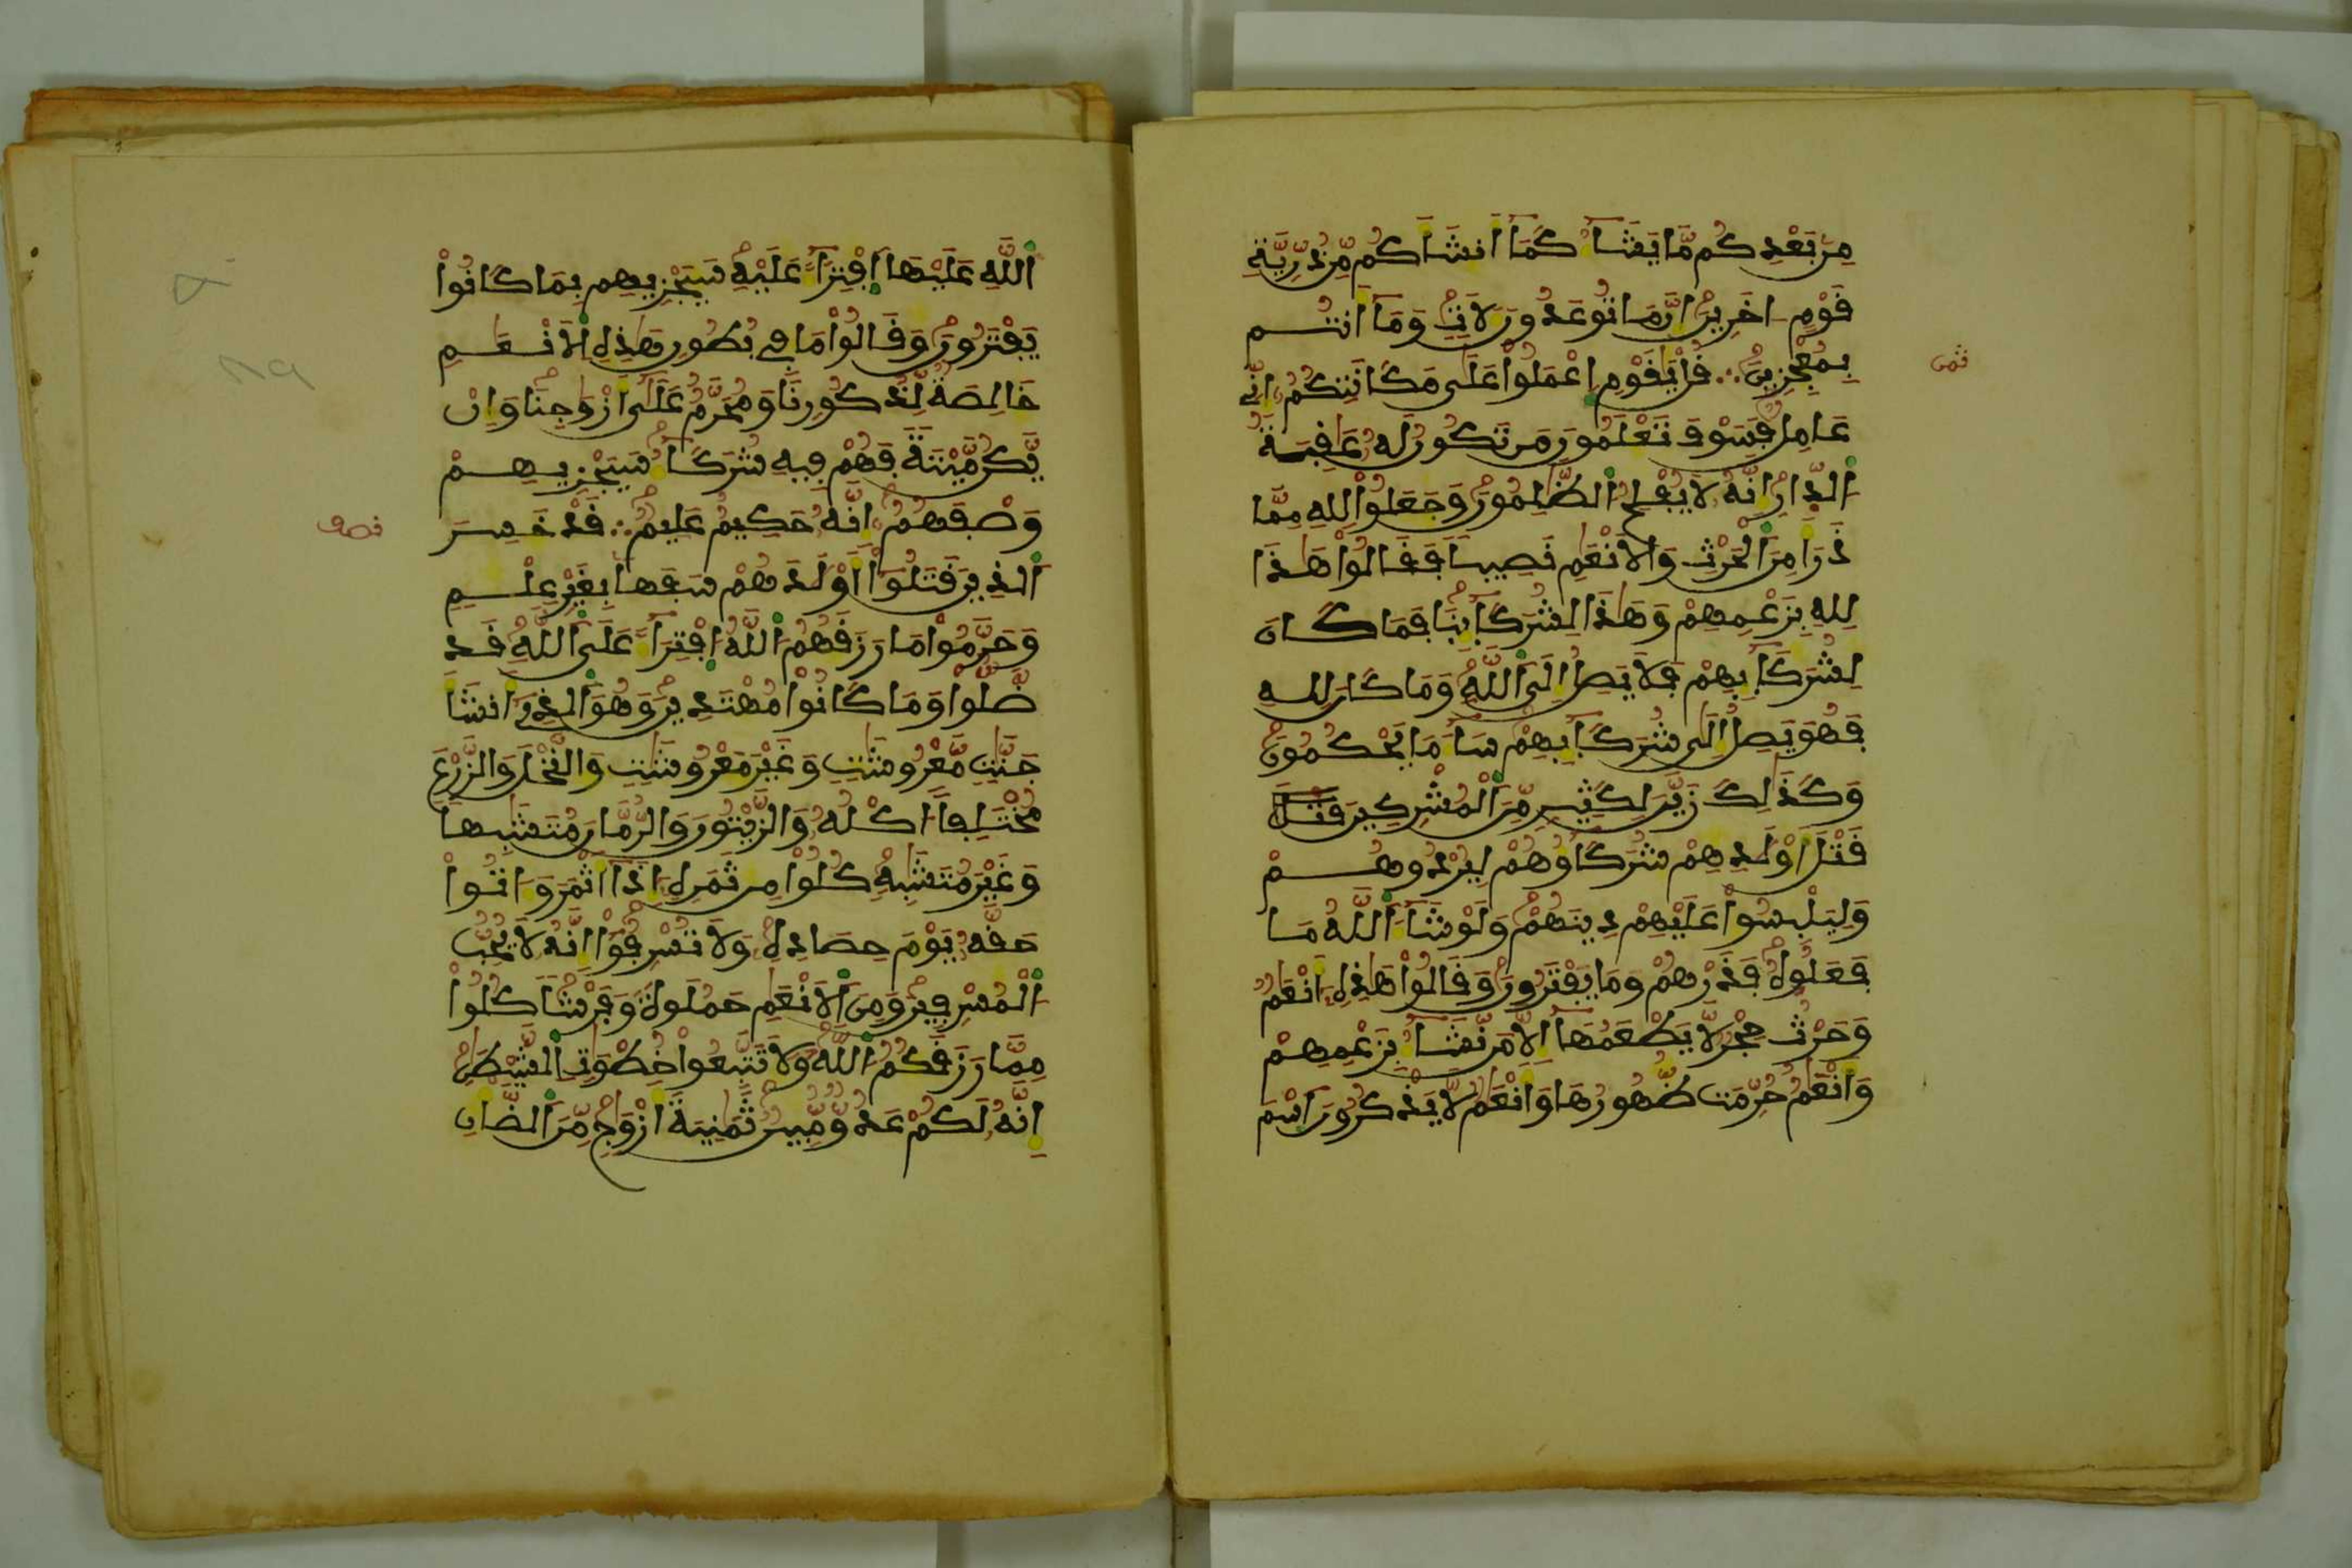 مِنۢ بَعْدِكُم مَّا يَشَآءُ كَمَآ أَنشَأَكُم مِّن ذُرِّيَّةِ
قَوْمٍ اخَرِينَ إِنَّ مَا تُوعَدُونَ لَأَتٖ وَمَآ أَنتُم
بِمُعْجِزِينَ ∴ قُلْ يَٰقَوْمِ اِعْمَلُواْ عَلَىٰ مَكَانَتِكُمُ إِنِّے
عَامِلٞ فَسَوْفَ تَعْلَمُونَ مَن تَكُونُ لَهُ عَٰقِبَةُ
اُ۬لدّ۪ارِ إِنَّهُ لَا يُفْلِحُ اُ۬لظَّٰلِمُونَ وَجَعَلُواْ لِلهِ مِمَّا
ذَرَأَ مِنَ اَ۬لْحَرْثِ وَالَانْعَٰمِ نَصِيباٗ فَقَالُواْ هَٰذَا
لِلهِ بِزَعْمِهِمْ وَهَٰذَا لِشُرَكَآئِنَا فَمَا كَانَ
لِشُرَكَآئِهِمْ فَلَا يَصِلُ إِلَى اَ۬للَّهِ وَمَا كَانَ لِلهِ
فَهُوَ يَصِلُ إِلَىٰ شُرَكَآئِهِمْ سَآءَ مَا يَحْكُمُونَ
وَكَذَٰلِكَ زَيَّنَ لِكَثِيرٖ مِّنَ اَ۬لْمُشْرِكِينَ قتل
قَتْلَ أَوْلَٰدِهِمْ شُرَكَآؤُهُمْ لِيُرْدُوهُمْ
وَلِيَلْبِسُواْ عَلَيْهِمْ دِينَهُمْ وَلَوْ شَآءَ اَ۬للَّهُ مَا
فَعَلُوهُ فَذَرْهُمْ وَمَا يَفْتَرُونَ وَقَالُواْ هَٰذِهِ أَنْعَٰمٞ
وَحَرْثٌ حِجْرٞ لَّا يَطْعَمُهَآ إِلَّا مَن نَّشَآءُ بِزَعْمِهِمْ
وَأَنْعَٰمٌ حُرِّمَت ظُّهُورُهَا وَأَنْعَٰمٞ لَّا يَذْكُرُونَ اَ۪سْمَ
ثمن
اَ۬للَّهِ عَلَيْهَا اَ۪فْتِرَآءً عَلَيْهِ سَيَجْزِيهِم بِمَا كَانُواْ
يَفْتَرُونَ وَقَالُواْ مَا فِے بُطُونِ هَٰذِهِ اِ۬لَانْعَٰمِ
خَالِصَةٞ لِّذُكُورِنَا وَمُحَرَّمٌ عَلَىٰٓ أَزْوَٰجِنَا وَإِنْ
يَّكُن مَّيْتَةٗ فَهُمْ فِيهِ شُرَكَآءُ سَيَجْزِيهِمْ
وَصْفَهُمُ إِنَّهُ حَكِيمٌ عَلِيمٞ ∴ قَدْ خَسِرَ
اَ۬لذِينَ قَتَلُوٓاْ أَوْلَٰدَهُمْ سَفَهاَۢ بِغَيْرِ عِلْمٖ
وَحَرَّمُواْ مَا رَزَقَهُمُ اُ۬للَّهُ اُ۪فْتِرَآءً عَلَى اَ۬للَّهِ قَد
ضَّلُّواْ وَمَا كَانُواْ مُهْتَدِينَ وَهُوَ اَ۬لذِےٓ أَنشَأَ
جَنَّٰتٖ مَّعْرُوشَٰتٖ وَغَيْرَ مَعْرُوشَٰتٖ وَالنَّخْلَ وَالزَّرْعَ
مُخْتَلِفاً أُكْلُهُ وَالزَّيْتُونَ وَالرُّمَّانَ مُتَشَٰبِهاٗ
وَغَيْرَ مُتَشَٰبِهٖ كُلُواْ مِن ثَمَرِهِ إِذَآ أَثْمَرَ وَءَاتُواْ
حَقَّهُ يَوْمَ حِصَادِهِ وَلَا تُسْرِفُوٓاْ إِنَّهُ لَا يُحِبُّ
اُ۬لْمُسْرِفِينَ وَمِنَ اَ۬لَانْعَٰمِ حَمُولَةٗ وَفَرْشاٗ كُلُواْ
مِمَّا رَزَقَكُمُ اُ۬للَّهُ وَلَا تَتَّبِعُواْ خُطْوَٰتِ اِ۬لشَّيْطَٰنِ
إِنَّهُ لَكُمْ عَدُوّٞ مُّبِينٞ ثَمَٰنِيَةَ أَزْوَٰجٖ مِّنَ اَ۬لضَّأْنِ
نصف